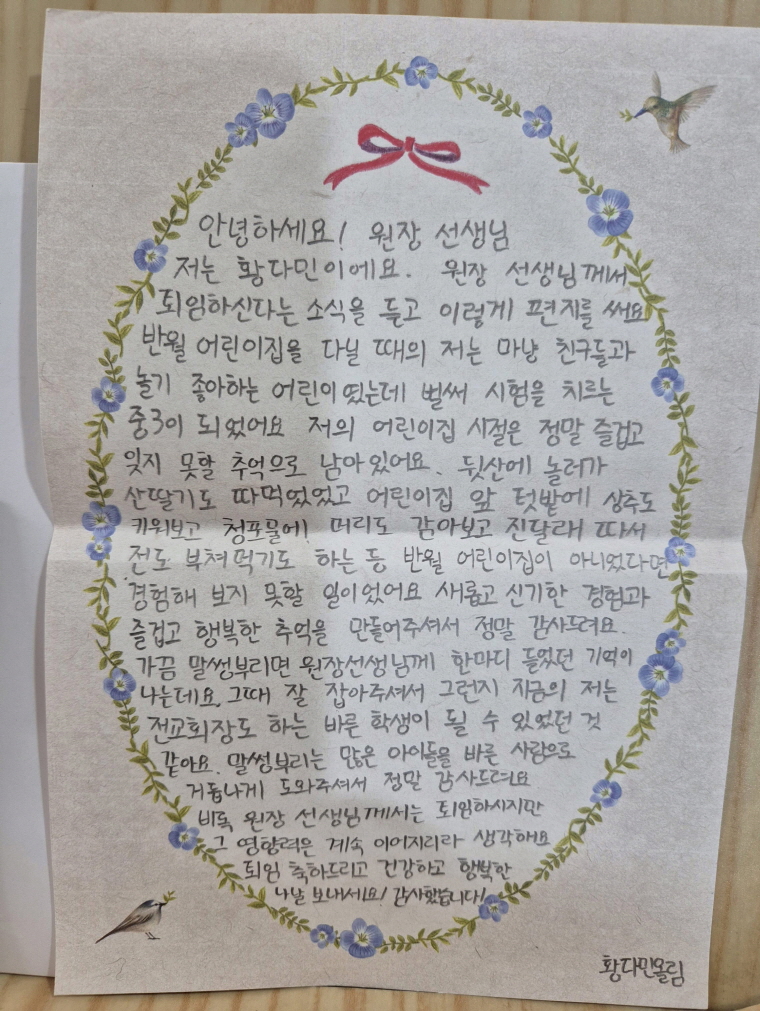 안녕하세요! 원장 선생님
저는 황다민이에요. 원장 선생님께서
퇴임하신다는 소식을 듣고 이렇게 편지를 써요
반월 어린이집을 다닐 때의 저는 마냥 친구들과
놀기 좋아하는 어린이였는데 벌써 시험을 치르는
중3이 되었어요 저의 어린이집 시절은 정말 즐겁고
잊지 못할 추억으로 남아있어요. 뒷산에 놀러가
산딸기도 따먹었었고 어린이집 앞 텃밭에 상추도
키워보고 청포물에! 머리도 감아보고 진달래 따서
전도 부쳐먹기도 하는 등 반월 어린이집이 아니었다면
경험해 보지 못할 일이었어요 새롭고 신기한 경험과
즐겁고 행복한 추억을 만들어주셔서 정말 감사드려요.
가끔 말썽부리면 원장선생님께 한마디 들었던 기억이
나는데요, 그때 잘 잡아주셔서 그런지 지금의 저는
전교회장도 하는 바른 학생이 될 수 있었던 것
같아요. 말썽부리는 많은 아이들을 바른 사람으로
거듭나게 도와주셔서 정말 감사드려요
비록 원장 선생님께서는 퇴임하시지만
그 영향력은 계속 이어지리라 생각해요
퇴임 축하드리고 건강하고 행복한
나날 보내세요! 감사했습니다!
황다민올림